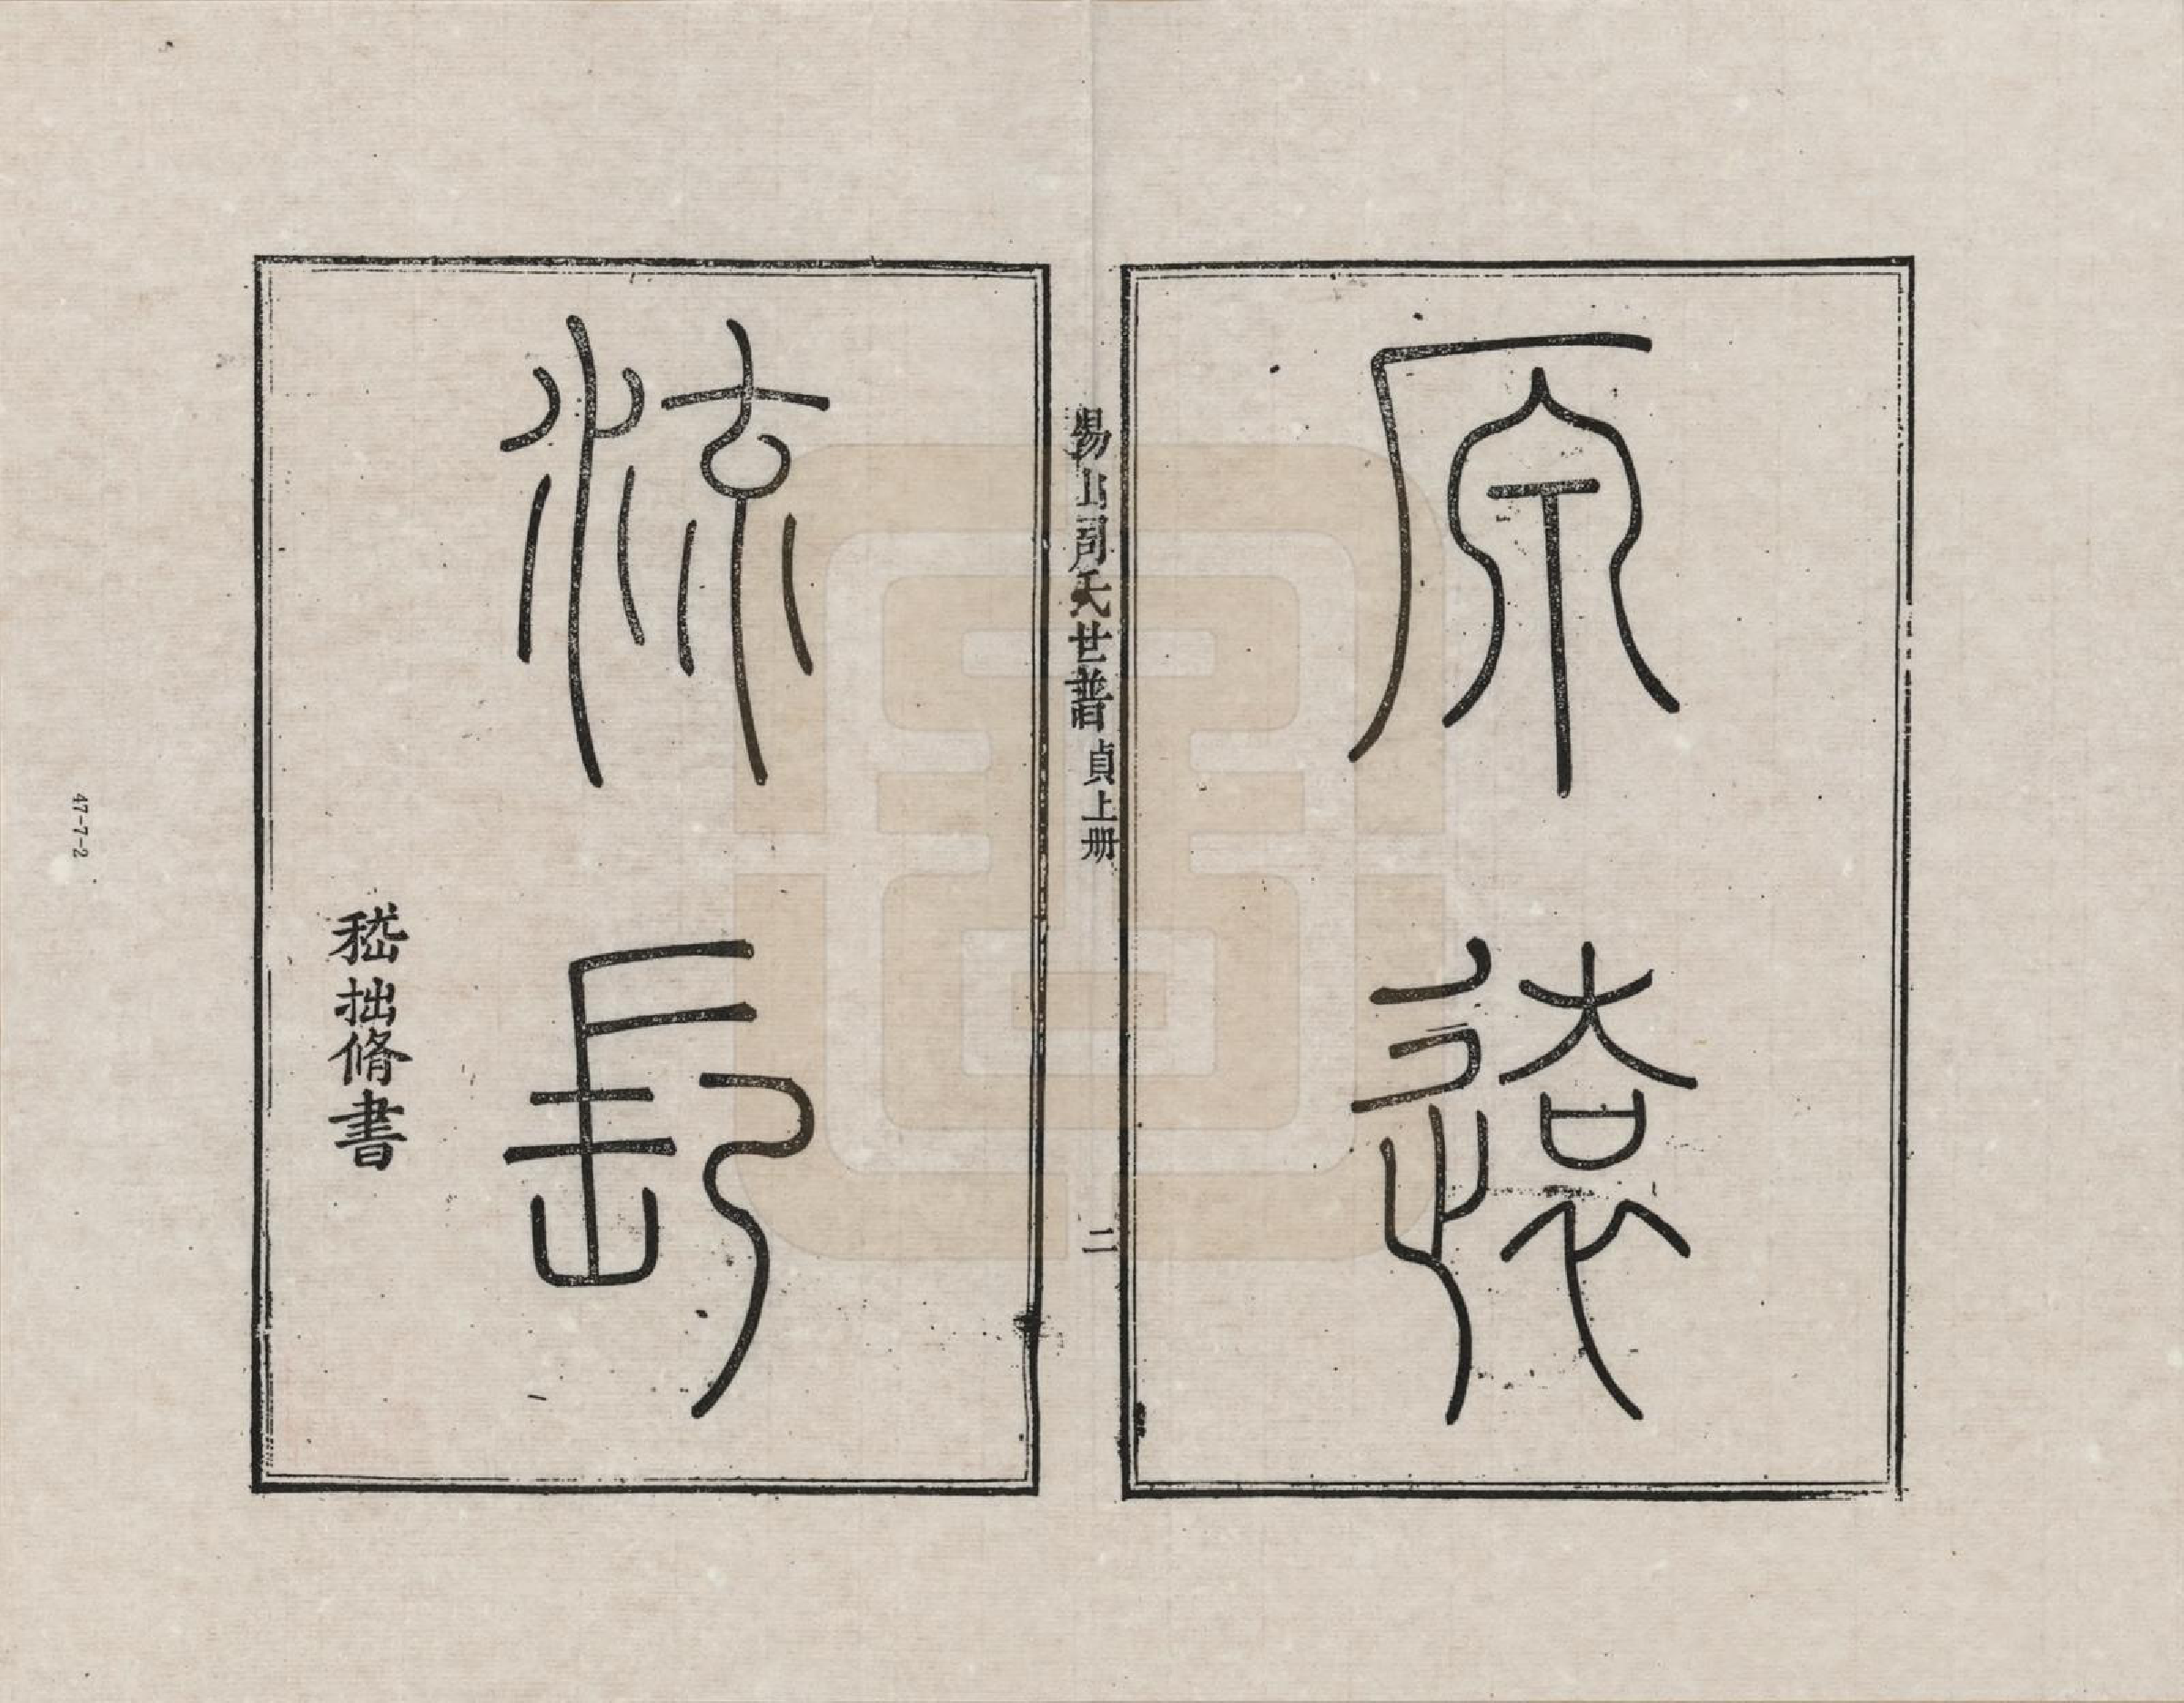 原遠
錫山周氏世譜 貞上册 二
流長
嵇拙脩書
47-7-2